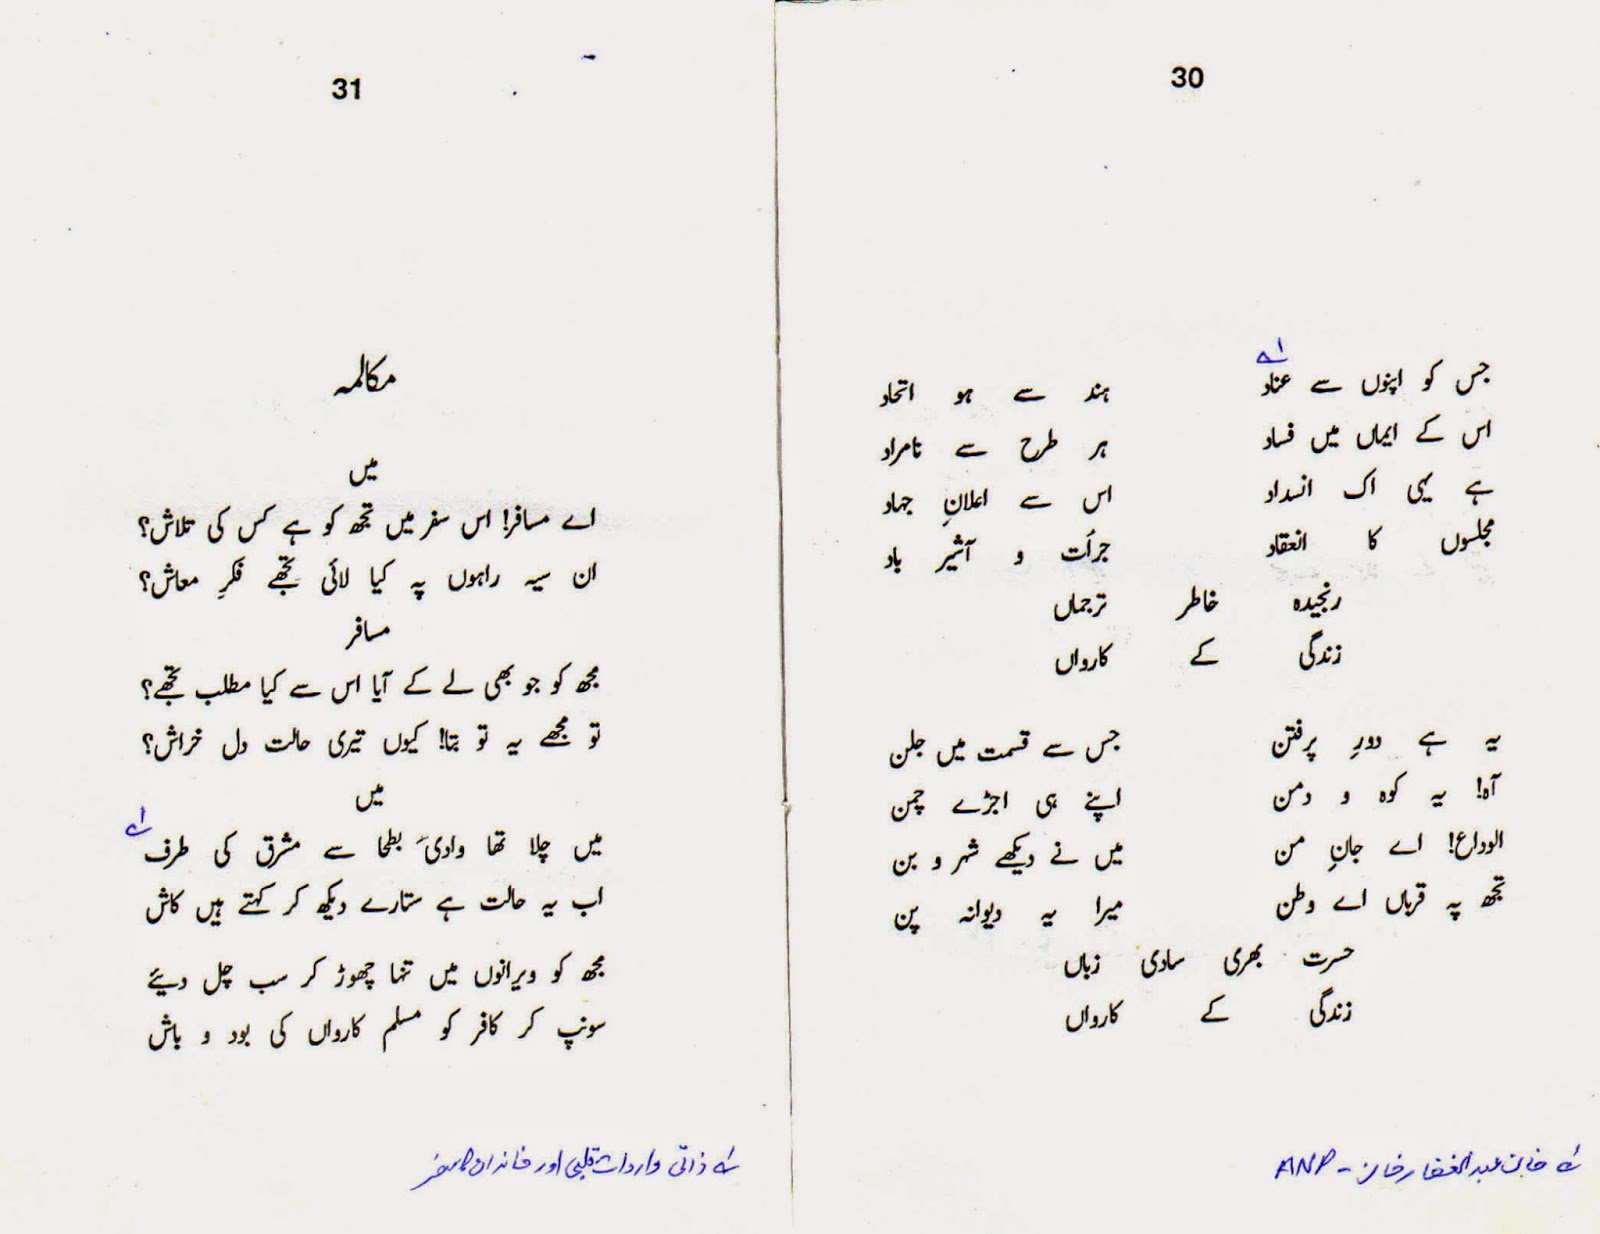 30
جس کو اپنوں سے عناد ہند سے ہو اتحاد
اس کے ایماں میں فساد ہر طرح سے نامراد
ہے یہی اک انسداد اس سے اعلانِ جہاد
مجلسوں کا انعقاد جرأت و آشیر باد
رنجیدہ خاطر ترجماں
زندگی کے کارواں
یہ ہے دورِ پرفتن جس سے قسمت میں جلن
آہ! یہ کوہ و دمن اپنے ہی اجڑے چمن
الوداع! اے جانِ من میں نے دیکھے شہر و بن
تجھ پہ قرباں اے وطن میرا یہ دیوانہ پن
حسرت بھری سادی زباں
زندگی کے کارواں
۱ے خان عبدالغفار خان - ANP
31
مکالمہ
میں
اے مسافر! اس سفر میں تجھ کو ہے کس کی تلاش؟
ان سیہ راہوں پہ کیا لائی تجھے فکرِ معاش؟
مسافر
مجھ کو جو بھی لے کے آیا اس سے کیا مطلب تجھے؟
تو مجھے یہ تو بتا! کیوں تیری حالت دل خراش؟
میں
میں چلا تھا وادیٔ بطحا سے مشرق کی طرف ۱ے
اب یہ حالت ہے ستارے دیکھ کر کہتے ہیں کاش
مجھ کو ویرانوں میں تنہا چھوڑ کر سب چل دیئے
سونپ کر کافر کو مسلم کارواں کی بود و باش
۱ے ذاتی واردات قلبی اور خاندان کا سفر